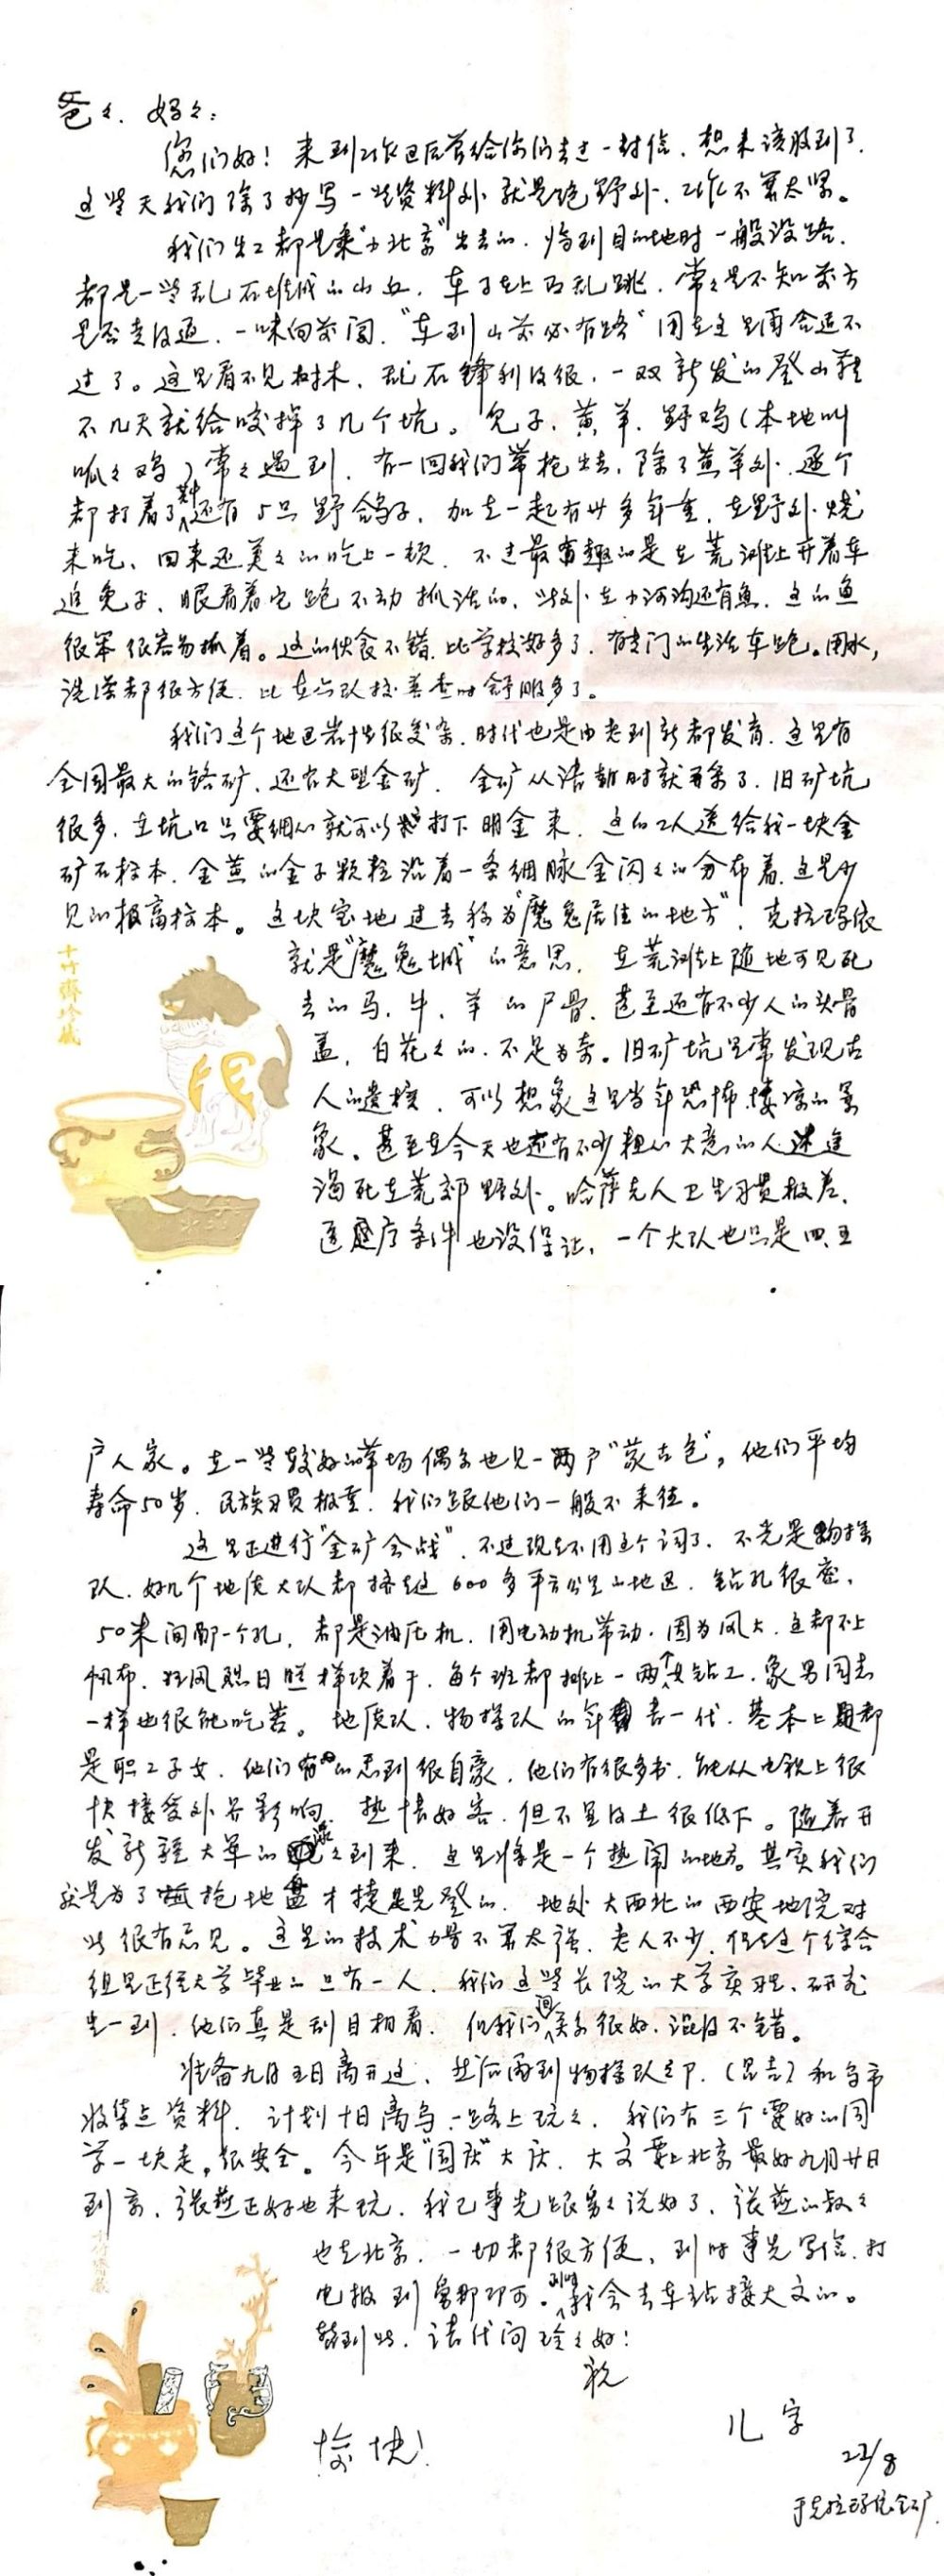 爸々、妈々：
您们好！来到工作区后曾给你们去过一封信，想来该收到了。
这些天我们除了抄写一些资料外就是跑野外，工作不算太紧。
我们出工都是乘“小北京”出去的，临到目的地时一般没路，
都是一些乱石堆成的山丘，车子在上面乱跳，常々是不知前方
是否走得通，一味向前闯，“车到山前必有路”用在这里再合适不
过了。这里看不见树木，乱石锋利得很，一双新发的登山鞋
不几天就给咬掉了几个坑。兔子、黄羊、野鸡（本地叫
呱々鸡）常々遇到，有一回我们带枪出去，除了黄羊外，逐个
都打着了，还有5只野鸽子，加在一起有廿多斤重，在野外烧
来吃，回来还美々的吃上一顿，不过最有趣的是在荒滩上开着车
追兔子，眼看着它跑不动抓活的，此外在小河沟还有鱼，这的鱼
很笨很容易抓着。这的伙食不错，比学校好多了，有专门的生活车跑。用水，
洗澡都很方便，比在六队校普查时舒服多了。
我们这个地区岩性很复杂，时代也是由老到新都发育，这里有
全国最大的铬矿，还有大型金矿，金矿从清朝时就开采了，旧矿坑
很多，在坑口只要细心就可以打下明金来，这的工人送给我一块金
矿石标本，金黄的金子颗粒沿着一条细脉金闪々的分布着，这是少
见的极高标本。这块宝地过去称为“魔鬼居住的地方”，克拉玛依
就是“魔鬼城”的意思，在荒滩上随地可见死
去的马、牛、羊的尸骨，甚至还有不少人的头骨
盖，白花々的，不足为奇。旧矿坑里常发现古
人的遗核，可以想象这里当年恐怖、凄凉的景
象，甚至在今天也还有不少粗心大意的人迷途
渴死在荒郊野外。哈萨克人卫生习惯极差，
医疗条件也没保证，一个大队也只是四、五
户人家。在一些较好的草场偶尔也见一两户“蒙古包”，他们平均
寿命50岁，民族习惯极重，我们跟他们一般不来往。
这里正进行“金矿会战”，不过现在不用这个词了，不光是物探
队，好几个地质大队都挤在这600多平方公里的地区，钻孔很密，
50米间隔一个孔，都是油压机，用电动机带动，因为风大，这都不上
帆布，狂风烈日照样顶着干，每个班都排上一两个女钻工，象男同志
一样也很能吃苦。地质队、物探队的年青一代，基本上都
是职工子女，他们感到很自豪，他们有很多书，能从电视上很
快接受外界影响，热情好客，但不显得土很低下。随着开
发新疆大军的滚々到来，这里将是一个热闹的地方。其实我们
就是为了抢地盘才捷足先登的，地处大西北的西安地院对
此很有意见。这里的技术力量不算太强，老人不少，但在这个综合
组里正经大学毕业的只有一人，我们这些长院的大学实习生、研究
生一到，他们真是刮目相看，但我们间关系很好，混得不错。
准备九月五日离开这，然后再到物探队总部，（昌吉）和乌市
收集点资料，计划十日离乌一路上玩々，我们有三个要好的同
学一块走，很安全。今年是“国庆”大庆，大文要上北京最好九月廿日
到京，张燕正好也来玩，我已事先跟舅々说好了，张燕的叔々
也在北京，一切都很方便，到时事先写信、打
电报到舅那即可。到时我会去车站接大文的。
暂到此，请代问玲々好！
祝
愉快！
儿 字
22/8
于克拉玛依金矿
十竹斋珍藏